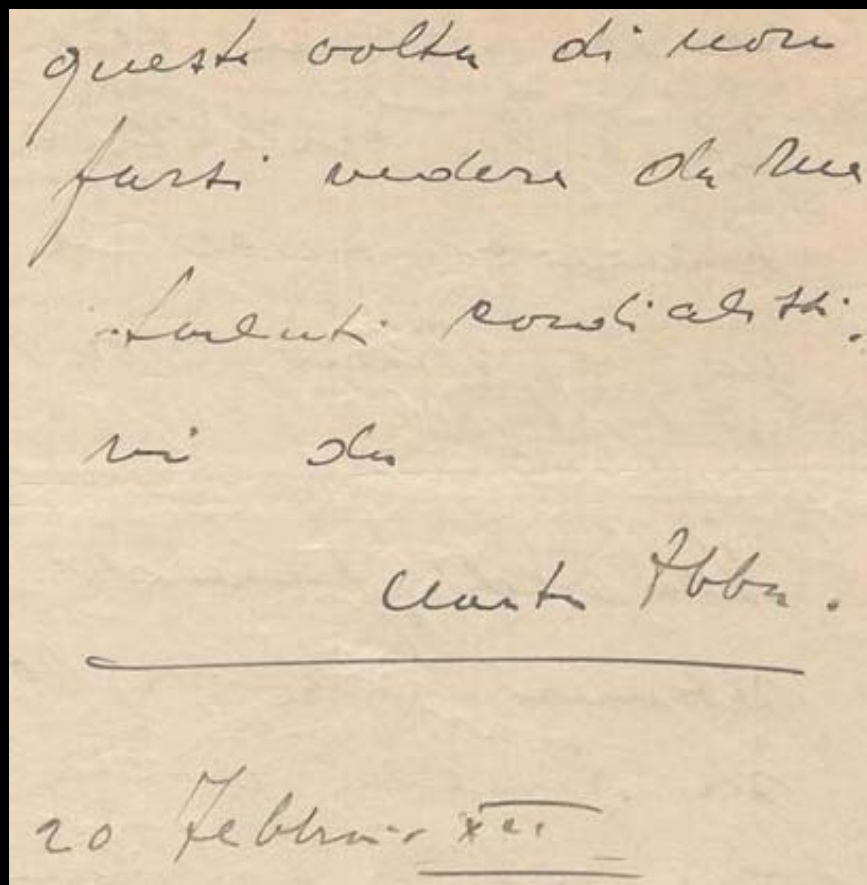 questa volta di non
farti vedere da me
Saluti cordialissi.
mi da
Marta Abba.
20 Febbraio XII